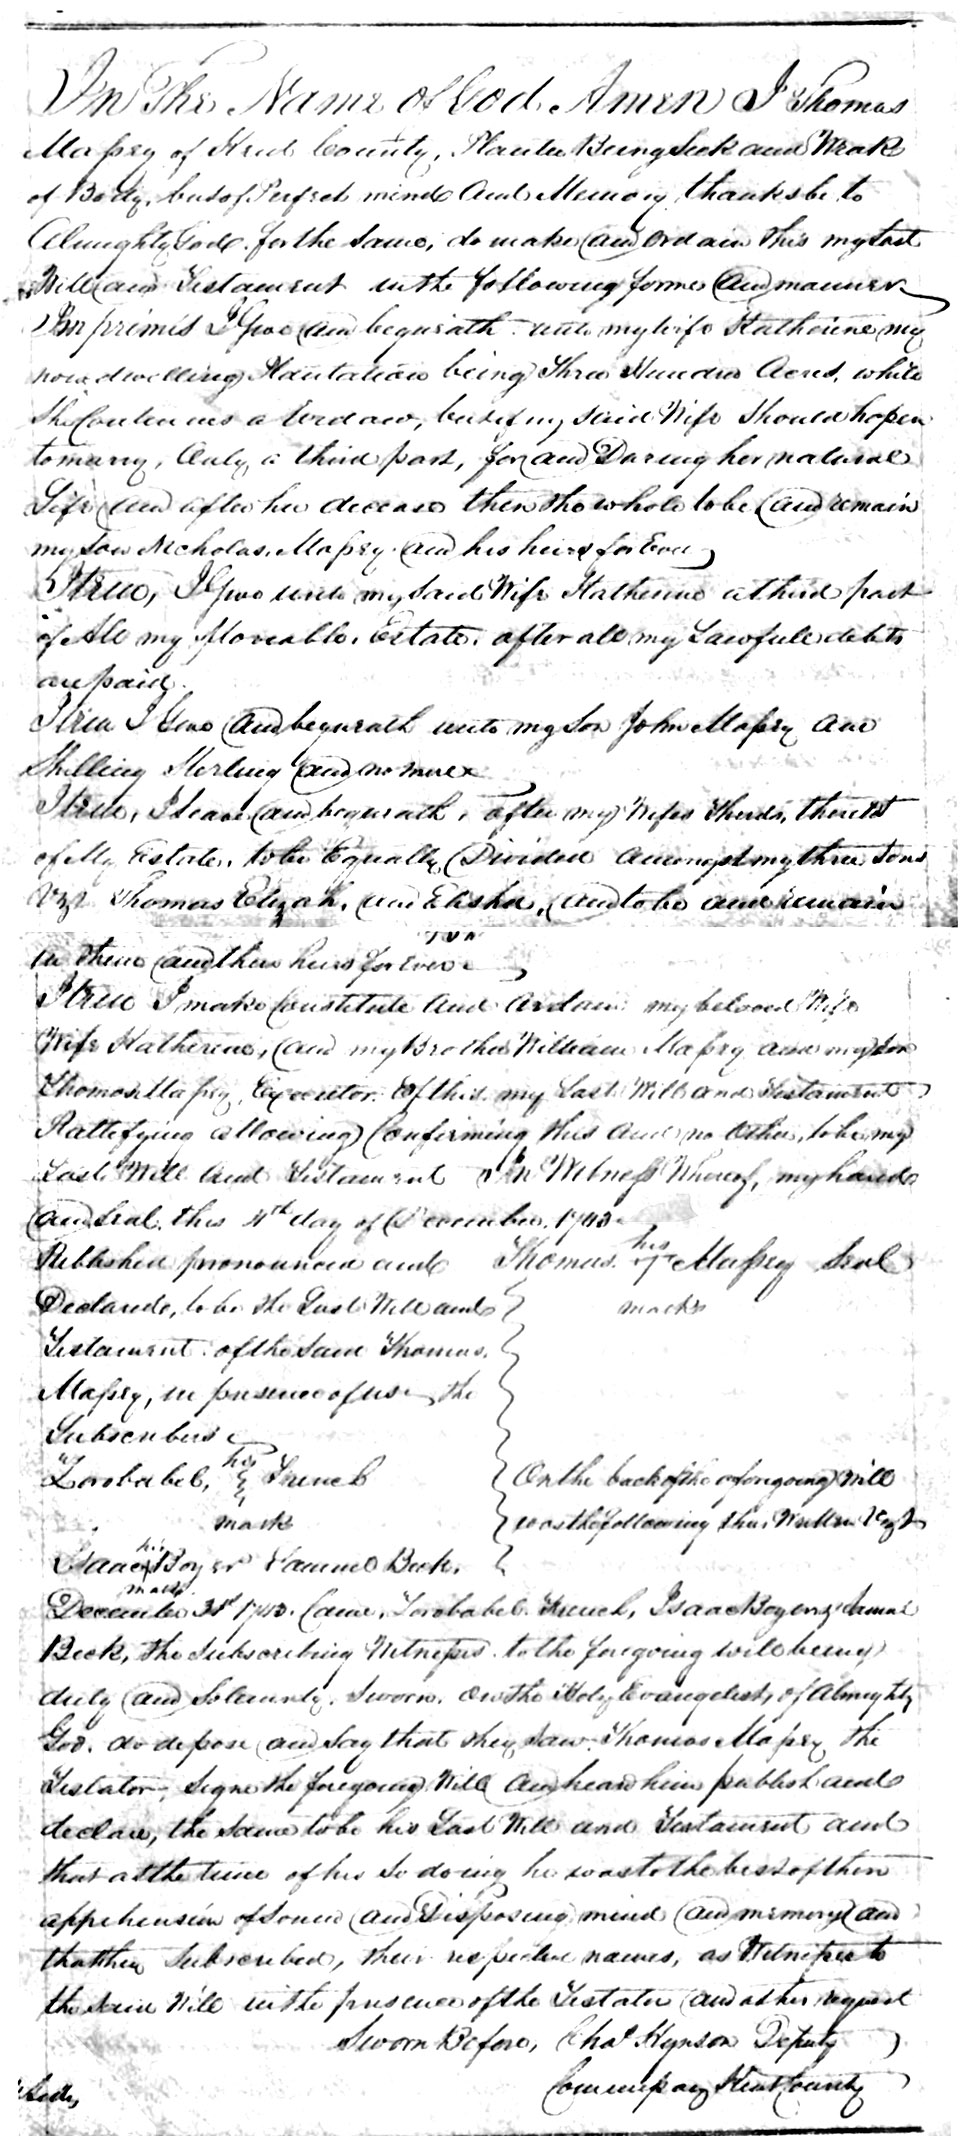 In The Name of God Amen I Thomas
Massey of Kent County, Planter Being Sick and Weak
of Body, but of Perfect mind and Memory, thanks be to
Almighty God for the same, do make and ordain this my Last
Will and Testament in the following forme and manner
Imprimis I Give and bequeath unto my wife Katherine my
now dwelling Plantation being Three Hundred Acres, while
She Continues a Widdow, but if my said Wife Should hapen
to marry, Only a third part, for and During her natural
Life and after her decease then the whole to be and remain
my Son Nicholas Massey and his heirs for Ever
Item, I Give unto my said Wife Katherine a third part
of All my Moveable Estate after all my Lawfull debts
are paid.
Item I Give and bequeath unto my Son John Massey one
Shilling Sterling and no more
Item, I Leave and bequeath, after my Wifes Thirds, the rest
of My Estate, to be Equally Divided amongst my three Sons
Vizt Thomas Elijah, and Elisha, and to be and remain
to them and their heirs for Ever
Item I make Constitute and ordain my beloved Wife
Wife Katherine, and my Brother William Massey and my Son
Thomas Massey Executor of this my Last Will and Testament
Rattefying allowing Confirming this and no other, to be my
Last Will and Testament In Witness Whereof, my hand
and Seal this 4th day of December, 1743
Published pronounced and Thomas his T Massey Seal
Declared, to be the Last Will and mark
Testament of the Said Thomas
Massey, in presence of us the
Subscribers
Zorobabel, his French On the back of the foregoing Will
mark was the following thus Written Vizt
Isaac his Boyer Samuel Beck.
mark
December 31st 1743. Came, Zorobabel French, Isaac Boyer & Samuel
Beck, the Subscribing Witnesses to the foregoing will being
duly and Solemnly Sworn on the Holy Evangelists of Almighty
God. do depose and Say that they saw Thomas Massey the
Testator, Signe the foregoing Will and heard him publish and
declare, the same to be his Last Will and Testament and
that at the time of his So doing he was to the best of their
apprehension of Sound and Disposing mind and memory and
that they Subscribed, their respective names, as Witnesses to
the said Will in the presence of the Testator and at his request
Sworn Before, Chas Hynson Deputy
Commissary Kent County